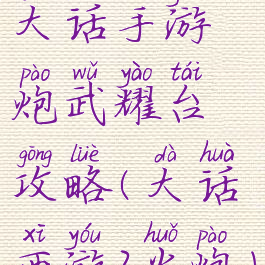 大话手游
pào wǔ yào tái
炮武耀台
gōng lüè dà huà
攻略(大话
xī yóu huǒ pào
西游2火炮)